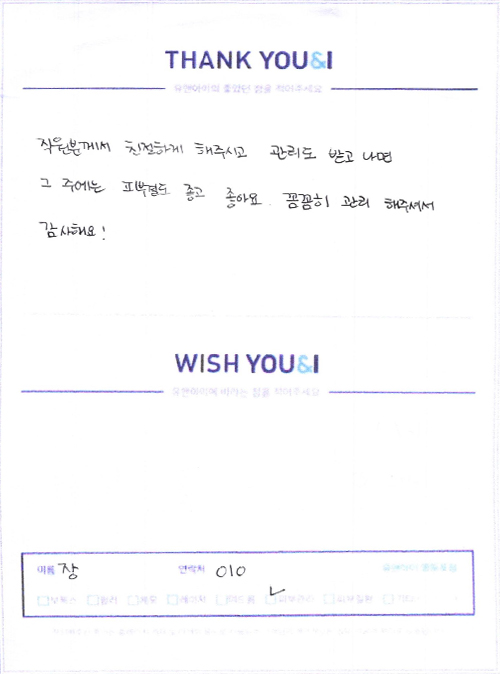 THANK YOU&I
유앤아이의 좋았던 점을 적어주세요
직원분께서 친절하게 해주시고 관리도 받고 나면
그 주에는 피부결도 좋고 좋아요. 꼼꼼히 관리 해주셔서
감사해요!
WISH YOU&I
유앤아이에 바라는 점을 적어주세요
이름 장 연락처 010
보톡스 필러 제모 레이저 여드름 피부관리 피부질환 기타